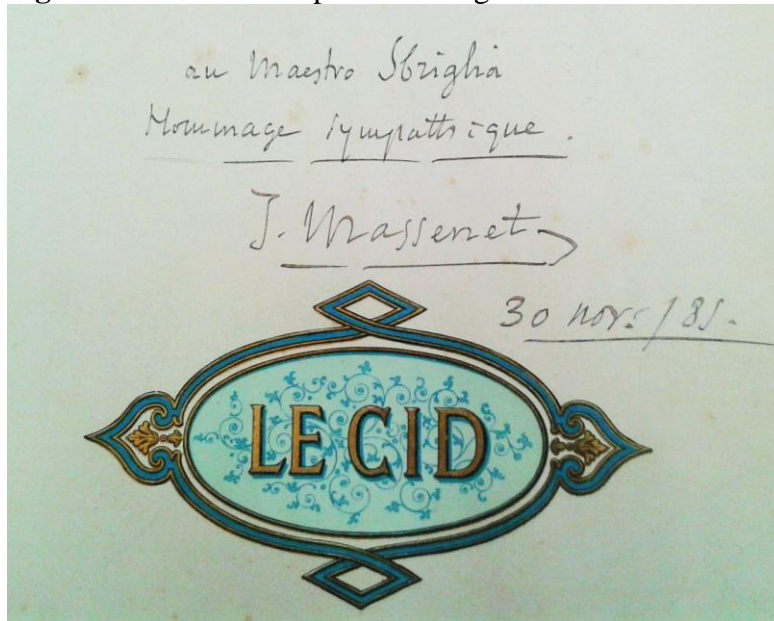 au Maestro Sbriglia
Hommage sympathique.
J. Massenet
30 nov: / 85.
LE CID